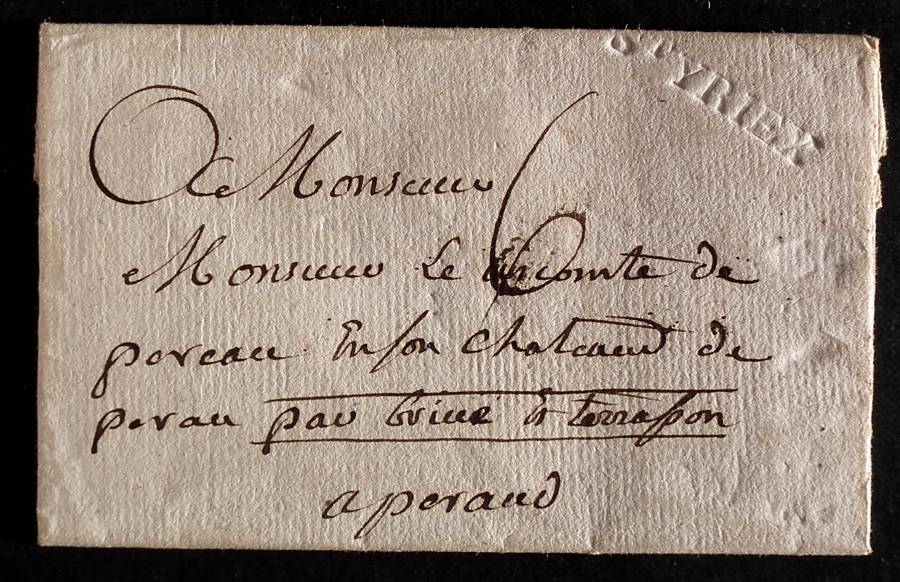 ST YRIEX
A Monsieur
6
Monsieur Le vicomte de
pereau Enson Chateaud de
perau par brive Et terrasson
a peraud